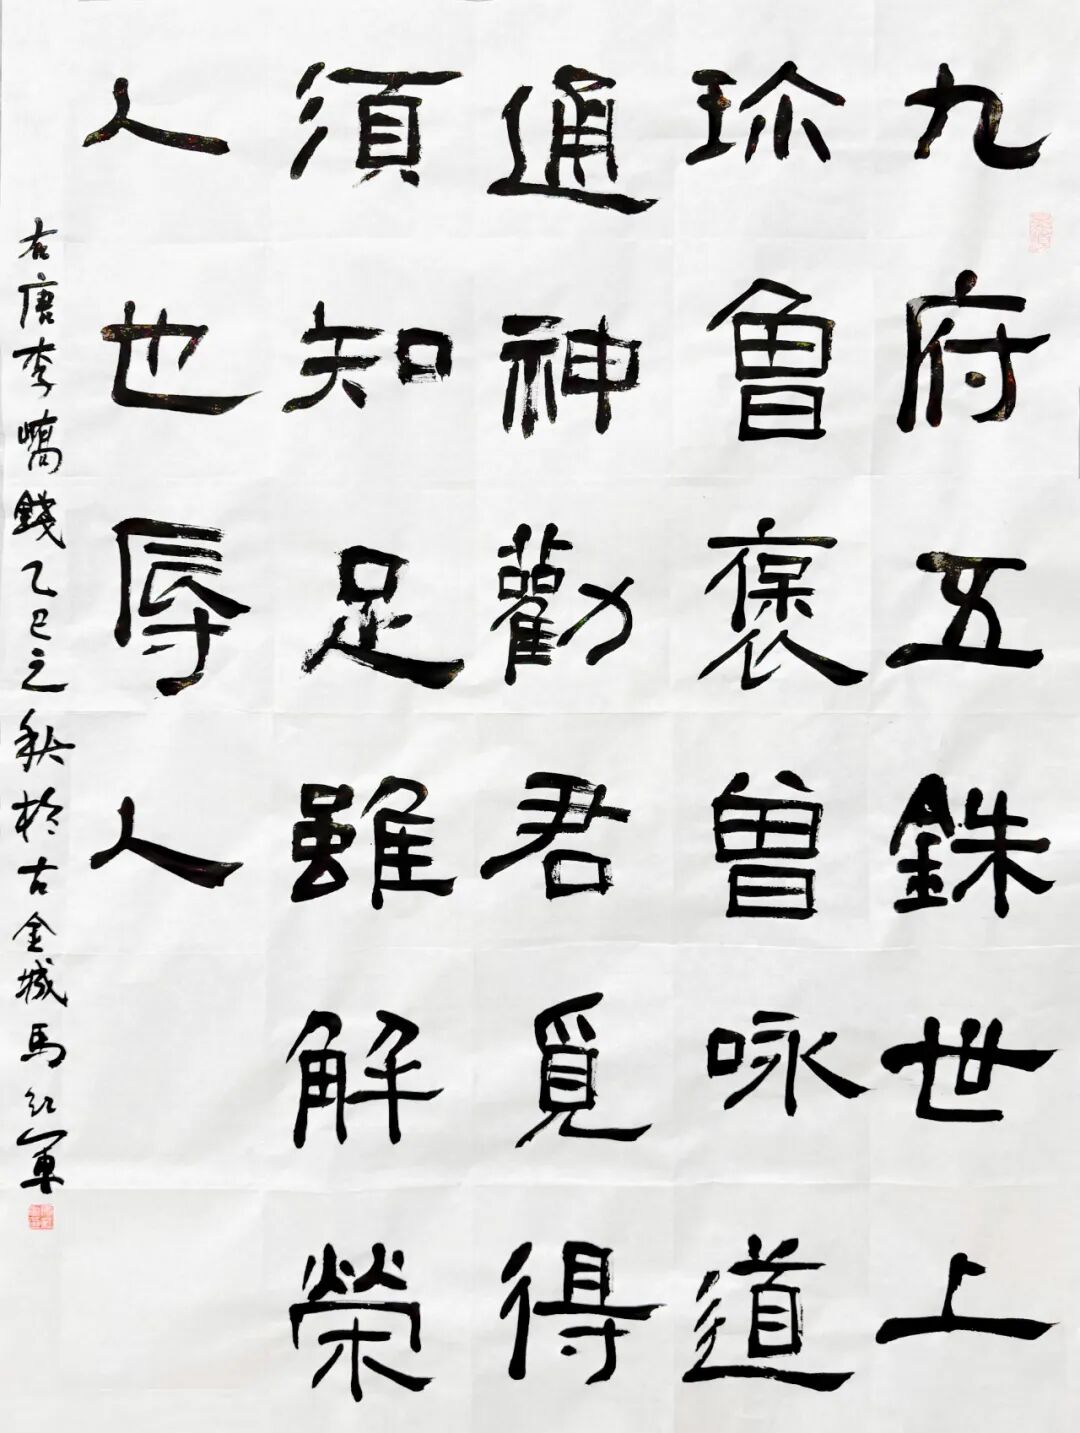 九府五銖世上
珎魯褒曾咏道
通神勸君覓得
須知足雖解榮
人也辱人
右唐李嶠錢乙巳之秋於古金城馬紅軍